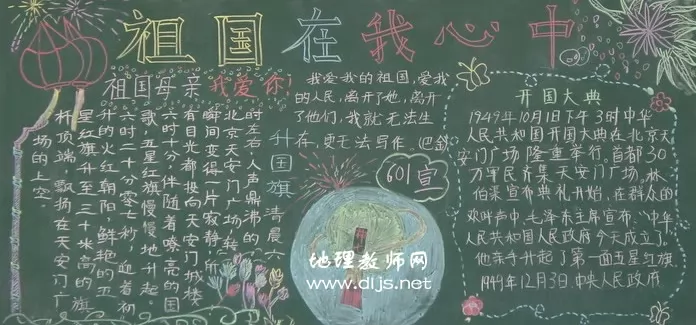 祖国在我心中
祖国母亲 我爱你!
我爱我的祖国,爱我
的人民,离开了她,离开
了他们,我就无法生
存,更无法写作。巴金
升国旗
清晨六
时左右,人声鼎沸的
北京天安门广场,转
瞬间变得一片寂静,所
有目光都投向天安门城楼
六时十分,伴随着嘹亮的国
歌,五星红旗慢慢地升起。
六时二十分零七秒,迎着初
升的火红朝阳,鲜艳的五
星红旗升至三十米高的旗
杆顶端,飘扬在天安门广
场的上空。
601宣
开国大典
1949年10月1日下午3时中华
人民共和国开国大典在北京天
安门广场隆重举行。首都30
万军民齐集天安门广场。林
伯渠宣布典礼开始,在群众的
欢呼声中,毛泽东主席宣布,"中华
人民共和国人民政府今天成立",
他亲手升起了第一面五星红旗
1949年12月3日中央人民政府
地理教师网
www.dljs.net